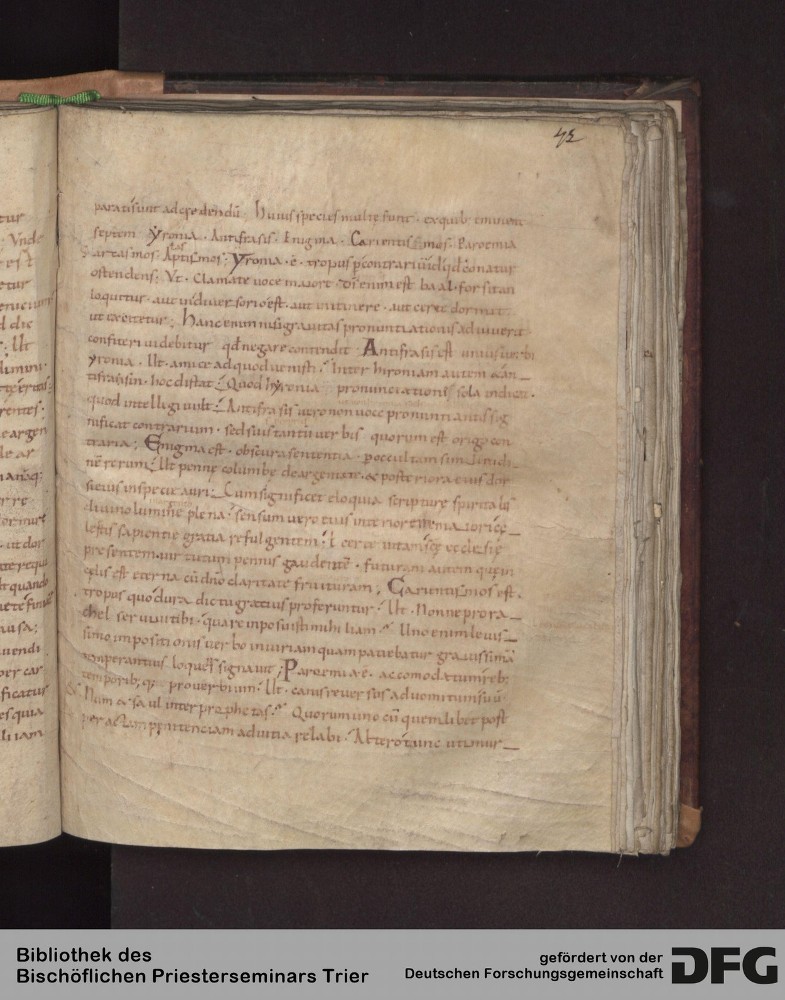 42
parati sunt ad cędendū Huius species multę sunt · ex quib; eminent
septem yronia · Antifrasis · Enigma · Carientismos · Paroemia
Sarcasmos · Aptismos; yronia · ē · tropus
ostendens; Ut · Clamate voce maiori · enim est baal · forsitan
loquitur · aut in diversorio est · aut in itinere · aut certe dormit
ut excitetur; Hanc enim nisi gravitas pronuntiationis adiuverit
confiteri videbitur qđ negare contendit Antifrasis est unius verbi
yronia · Ut · amice ad quod venisti; Inter hironiam autem & an_
tifrasin · hoc distat; Quod hyronia pronunciatione sola indicat ·
quod intelligi vult; Antifrasis vero non voce pronuntiantis sig
nificat contrarium · sed suis tantū verbis quorum est origo con
traria; Enigma est · obscura sententia · p occultam similitudi_
nē rerum; Ut pennę columbe deargentate · & posteriora eius dor
si eius in specie auri; Cum significet eloquia scripturę spiritalis
divino lumine plena; sensum vero eius interiorem
lestis sapientie gratia refulgentem; ł certe vitam ecclesię
presentem virtutum pennis gaudentē · futuram autem quę in
cęlis est eterna cū dnō claritate fruituram; Carientismos est ·
tropus quo dura dictu gratius proferuntur; Ut · Nonne pro ra_
chel servivi tibi · quare inposuisti mihi liam; Uno enim levis_
simo impositionis verbo iniuriam quam patiebatur gravissimā
temperantius loquens signavit; Paroemia ē · accomodatum reb;
temporib; q; proverbium; Ut · canis reversus ad vomitum suū
& Num & saul inter prophetas; Quorum uno cū quemlibet post
peractam penitentiam ad vitia relabi · Altero tunc utimur_
tur
Unde
est
tur
d dic
Ut
rentes ·
argen
le ar
ut dor
quando
vendi
per car
ficatur
es quia
liam
Bibliothek des
Bischöflichen Priesterseminars Trier
gefördert von der
Deutschen Forschungsgemeinschaft
DFG